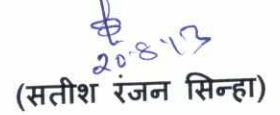 20.8.13
(सतीश रंजन सिन्हा)